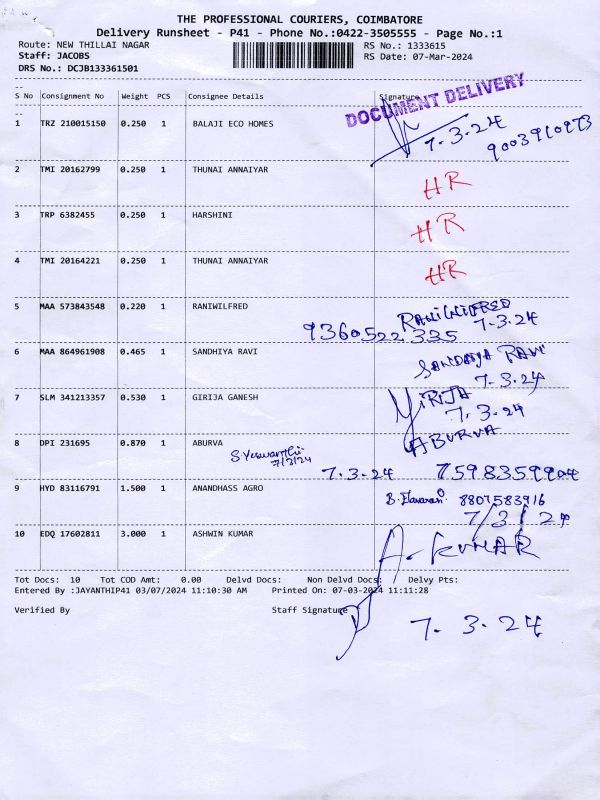 THE PROFESSIONAL COURIERS, COIMBATORE
Delivery Runsheet - P41 - Phone No.:0422-3505555 - Page No.:1
Route: NEW THILLAI NAGAR RS No.: 1333615
Staff: JACOBS RS Date: 07-Mar-2024
DRS No.: DCJB133361501
S No Consignment No Weight PCS Consignee Details Signature
DOCUMENT DELIVERY
1 TRZ 210015150 0.250 1 BALAJI ECO HOMES 7.3.24
2 TMI 20162799 0.250 1 THUNAI ANNAIYAR HR
3 TRP 6382455 0.250 1 HARSHINI HR
4 TMI 20164221 0.250 1 THUNAI ANNAIYAR HR
5 MAA 573843548 0.220 1 RANIWILFRED RANIWILFRED 7.3.24
9360522335
6 MAA 864961908 0.465 1 SANDHIYA RAVI SANDHIYA RAVI
7.3.24
7 SLM 341213357 0.530 1 GIRIJA GANESH GIRIJA
7.3.24
8 DPI 231695 0.870 1 ABURVA ABURVA
7/3/24
7.3.24 7598359904
9 HYD 83116791 1.500 1 ANANDHASS AGRO 8807583916
7/3/24
10 EDQ 17602811 3.000 1 ASHWIN KUMAR A. KUMAR
Tot Docs: 10 Tot COD Amt: 0.00 Delvd Docs: Non Delvd Docs: Delvy Pts:
Entered By :JAYANTHIP41 03/07/2024 11:10:30 AM Printed On: 07-03-2024 11:11:28
Verified By Staff Signature
7.3.24